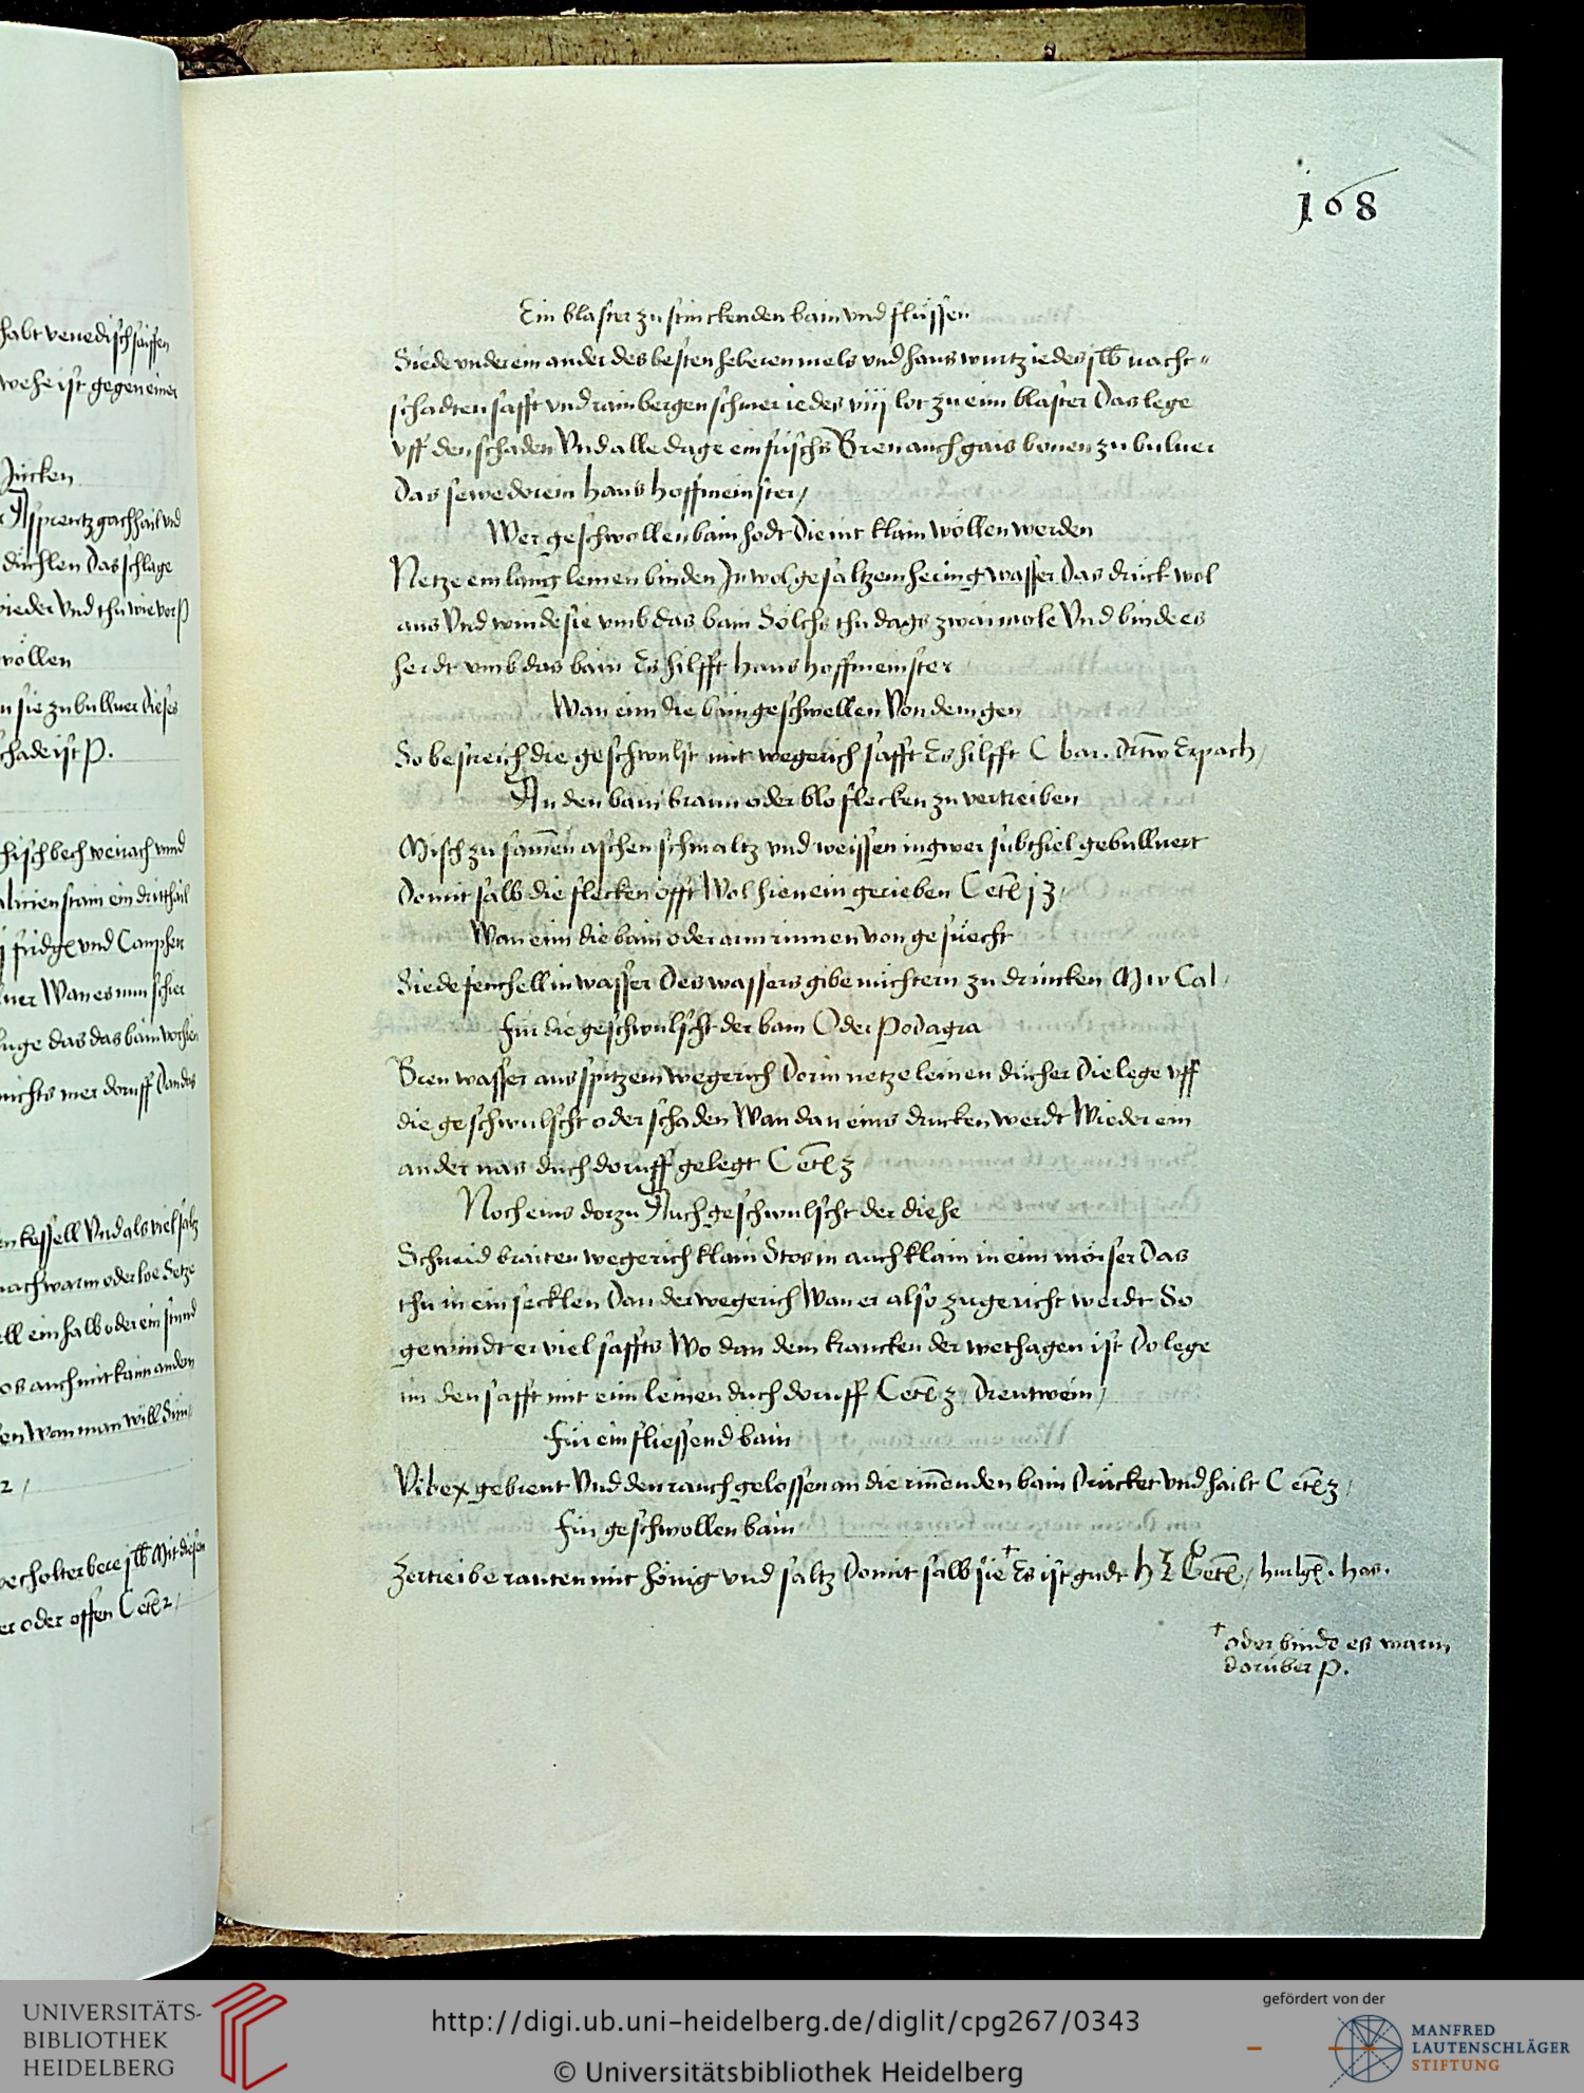 168
Ein blaster zu stinckenden bain vnd flüssen
Siede vnder ein ander des besten heberen mels vnd haus wurtz iedes j lb nacht-
schadten safft vnd rain bergen schmer iedes viij lot zu eim blaster Das lege
vff den schaden Vnd alle dage ein frischs Bren auch gais bonen zu buluer
Das sewe dorein hans hoffmeinster /
Wer geschwollen bain hodt Die nit klain wöllen werden
Netze ein lang leinen binden In wol gesaltzem hering wasser Das drück wol
aus Vnd winde sie vmb das bain Sölchs thu dags zwai mole Vnd binde es
herdt vmb das bain Es hilfft hans hoffmeinster
Wan eim die bain geschwellen Von dem gen
So bestreich die geschwulst mit wegerich safft Es hilfft C bar. Erpach /
An den bain braun oder blo flecken zu vertreiben
Misch zu samen aschen schmaltz vnd weissen ingwer subthiel gebulluert
Domit salb die flecken offt Wol hienein gerieben C
Wan eim die bain oder arm rinnen von gesuecht
Siede fenchell in wasser Des wassers gibe nüchtern zu drincken
Für die geschwulscht der bain Oder Podagra
Bren wasser aus spitzem wegerich Dorin netze leinen dücher Die lege vff
die geschwulscht oder schaden Wan dan eins drucken werdt Wieder ein
ander nas duch doruff gelegt C
Noch eins dorzu Auch geschwulscht der diehe
Schneid braiten wegerich klain Stos in auch klain in eim mörser Das
thu in ein secklen Dan der wegerich Wan er also zugericht werdt So
gewindt er viel saffts Wo dan dem krancken der wethagen ist Do lege
im den safft mit eim leinen duch doruff C Drentwein /
Für ein fliessend bain
Vibex gebrent Vnd den rauch gelossen an die rinenden bain Drücket vnd hailt C
Für geschwollen bain
Zertreibe rauten mit hönig vnd saltz Domit salb sie † Es ist gudt
† oder binde es warm
darüber P.
habt venedisch saiffen
wehe ist gegen einer
Jücken
dücklen Das schlage
wieder Vnd thu wie vor P
wöllen
n sie zu bulluer Dieses
schade ist P.
j fridg vnd Campfer
luer Wan es nun schier
nichts mer doruff Dan des
en kessell Vnd als viel saltz
nach warm oder loe Setze
ell ein halb oder ein stund
os auch mit kaim andern
en Wan man will
er oder offen C
UNIVERSITÄTS-
BIBLIOTHEK
HEIDELBERG
http://digi.ub.uni-heidelberg.de/diglit/cpg267/0343
© Universitätsbibliothek Heidelberg
gefördert von der
MANFRED
LAUTENSCHLÄGER
STIFTUNG